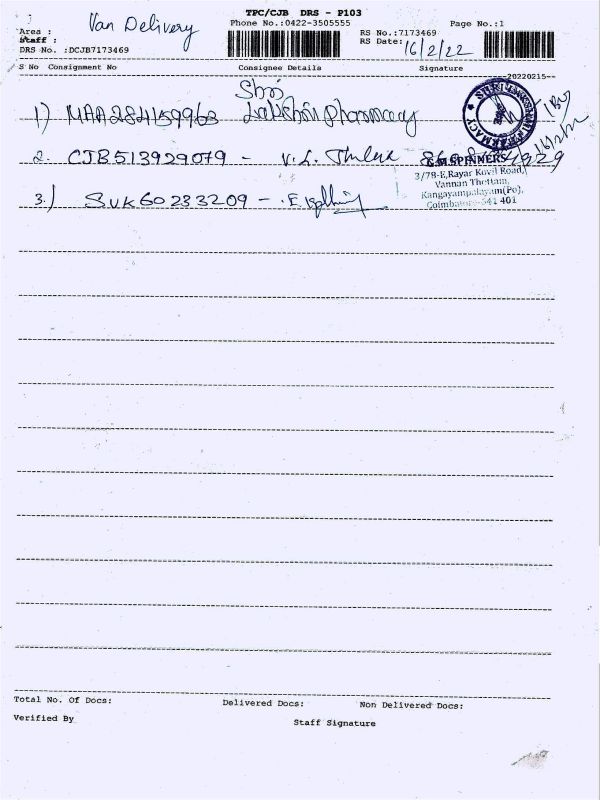 TPC/CJB DRS - P103
Van Delivery
Phone No.:0422-3505555
Page No.:1
Area :
Staff :
RS No.:7173469
DRS No. :DCJB7173469
RS Date: 16/2/22
S No Consignment No Consignee Details Signature
20220215
1) MAA284159963 Shri
Lakshmi Pharmacy
SHRI LAKSHMI PHARMACY
16/2/22
2. CJB513929079 - V.L.
G.M SPINNERS
3/78-E,Rayar Kovil Road,
Vannan Thottam,
Kangayampalayam(Po),
Coimbatore-641 401
3.) SUK60233209 -
Total No. Of Docs: Delivered Docs: Non Delivered Docs:
Verified By Staff Signature